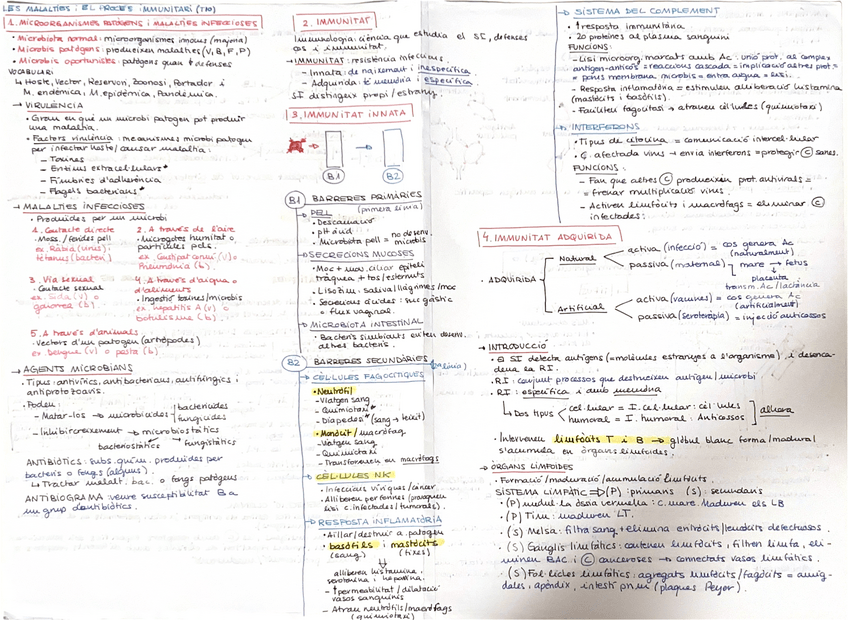 LES MALALTIES i EL PROCÉS IMMUNITARI (T10)
1. MICROORGANISMES PATÒGENS i MALALTIES INFECCIOSES
• Microbiota normal: microorganismes inocus (majoria)
• Microbis patògens: produeixen malalties (V, B, F, P)
• Microbis oportunistes: patògens quan ↓ defenses
VOCABULARI
↳ Hoste, Vector, Reservori, Zoonosi, Portador i
M. endèmica, M. epidèmica, Pandèmica.
→ VIRULÈNCIA
• Grau en què un microbi patogen pot produir
una malaltia.
• Factors virulència: mecanismes microbi patogen
per infectar hoste/causar malaltia:
– Toxines
– Enzims extracel·lulars*
– Fímbries d'adherència
– Flagels bacterians*
→ MALALTIES INFECCIOSES
• Produïdes per un microbi
1. Contacte directe
Moss./ferides pell
ex. Ràbia (virus).
tètanus (bacteri)
2. A través de l'aire
• Microgotes humitat o
partícules pols.
ex. Constipat comú (V) o
Pneumònia (b).
3. Via sexual
• Contacte sexual
ex. Sida (V) o
gonorrea (b).
4. A través d'aigua o
d'aliments
• Ingestió toxines/microbis
ex. hepatitis A (V) o
botulisme (b).
5. A través d'animals
• Vectors d'un patogen (artròpodes)
ex. Dengue (V) o pesta (b)
→ AGENTS MICROBIANS
• Tipus: antivírics, antibacterians, antifúngics i
antiprotozoaris.
• Poden:
– Matar-los → microbicides
bactericides
fungicides
– Inhibir creixement → microbiostàtics
bacteriostàtics
fungistàtics
ANTIBIÒTICS: subs. quím. produïdes per
bacteris o fongs (alguns).
↳ Tractar malalt. bac. o fongs patògens
ANTIBIOGRAMA: veure susceptibilitat B a
un grup d'antibiòtics.
2. IMMUNITAT
Immunologia: ciència que estudia el SI, defenses
cos i immunitat.
→ IMMUNITAT: resistència infeccions.
– Innata: de naixement i inespecífica
– Adquirida: té memòria i específica
SI distingeix propi/estrany.
3. IMMUNITAT INNATA
B1
B2
B1 BARRERES PRIMÀRIES
(primera línia)
→ PELL
• Descamació
• pH àcid
• Microbiota pell = no desenv. microbis
→ SECRECIONS MUCOSES
• Moc + mov. ciliar epiteli
tràquea + tos/esternuts
• Lisozim. saliva/llàgrimes/moc
• Secrecions àcides: suc gàstric
o flux vaginal.
→ MICROBIOTA INTESTINAL
• Bacteris simbionts eviten desenv.
altres bacteris.
B2 BARRERES SECUNDÀRIES
(2a línia)
→ CÈL·LULES FAGOCÍTIQUES
• Neutròfil
– Viatgen sang
– Quimiotaxi*
– Diapedesi* (sang → teixit)
• Monòcit/macròfag
– Viatgen sang
– Quimiotaxi
– Transformen en macròfags
→ CÈL·LULES NK
• Infeccions víriques/càncer
• Alliberen perforines (provoquen
lisi c. infectades/tumorals).
→ RESPOSTA INFLAMATÒRIA
• Aïllar/destruir a patogen
• basòfils i mastòcits
(sang) (fixes)
alliberen histamina,
serotonina i heparina.
– ↑ permeabilitat/dilatació
vasos sanguinis
– Atrau neutròfils/macròfags
(quimiotaxi)
→ SISTEMA DEL COMPLEMENT
• ↑ resposta immunitària
• 20 proteïnes al plasma sanguini
FUNCIONS:
– Lisi microorg. marcats amb Ac: unió prot. al complex
antigen-anticòs = reaccions cascada = implicació altres prot. =
= porus membrana microbis = entra aigua = lisi.
– Resposta inflamatòria = estimulen alliberació histamina
(mastòcits i basòfils).
– Faciliten fagocitosi → atrauen cèl·lules (quimiotaxi)
→ INTERFERONS
• Tipus de citocina = comunicació intercel·lular
• C. afectada virus → envia interferons = protegir C sanes.
FUNCIONS:
– Fan que altres C produeixin prot. antivirals =
= frenar multiplicació virus.
– Activen limfòcits i macròfags = eliminar C
infectades.
4. IMMUNITAT ADQUIRIDA
• ADQUIRIDA
Natural
activa (infecció) = cos genera Ac
(naturalment)
passiva (maternal) mare → fetus
placenta
transm. Ac/lactància
Artificial
activa (vacunes) = cos genera Ac
(artificialment)
passiva (seroteràpia) = injecció anticossos
→ INTRODUCCIÓ
• El SI detecta antígens (= molècules estranyes a l'organisme), i desenca-
dena la RI.
• RI: conjunt processos que destrueixen antigen/microbi
• RI: específica i amb memòria
↳ Dos tipus
cel·lular = I. cel·lular: cèl·lules
humoral = I. humoral: Anticossos
alhora
• Intervenen limfòcits T i B → glòbul blanc forma/madura/
s'acumula en òrgans limfoides.
→ ÒRGANS LIMFOIDES
• Formació/maduració/acumulació limfòcits.
SISTEMA LIMFÀTIC ⇒ (P): primaris (S): secundaris
• (P) Medul·la òssia vermella: c. mare. Maduren els LB
• (P) Tim: maduren LT.
• (S) Melsa: filtra sang + elimina eritròcits/leucòcits defectuosos.
• (S) Ganglis limfàtics: contenen limfòcits, filtren limfa, eli-
minen BAC i C canceroses → connectats vasos limfàtics.
• (S) Fol·licles limfàtics: agregats limfòcits/fagòcits = amíg-
dales, apèndix, intestí prim (plaques Peyer).